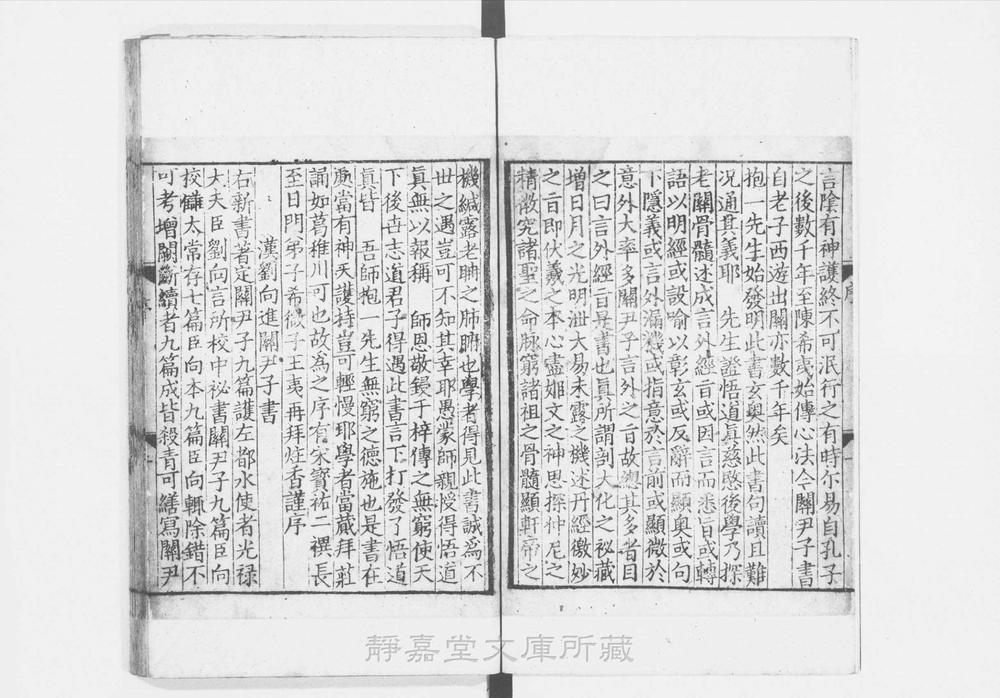 言陰有神護終不可泯行之有時尓易自孔子
之後數千年至陳希夷始傳心法今關尹子書
自老子西遊出關亦數千年矣
抱一先生始發明此書玄奧然此書句讀且難
况通其義耶 先生證悟道眞慈愍後學乃探
老關骨髓述成言外經㫖或因言而悉旨或轉
語以明經或設喻以彰玄或反辭而顯奧或句
下隱義或言外漏機或指意於言前或顯微於
意外大率多關尹子言外之㫖故總其多者目
之曰言外經㫖是書也眞所謂剖大化之秘藏
增日月之光明泄大易未露之機述丹經微妙
之㫖即伏羲之本心盡姬文之神思探仲尼之
精微究諸聖之命脉窮諸祖之骨髓顯軒帝之
機緘露老聃之肺腑也學者得見此書誠爲不
世之遇豈可不知其幸耶愚蒙師親授得悟道
眞無以報稱 師恩敬鋟于梓傳之無窮使天
下後世志道君子得遇此書言下打發了悟道
眞皆 吾師抱一先生無窮之德施也是書在
處當有神天護持豈可輕慢耶學者當藏拜莊
誦如葛稚川可也故爲之序有宋寳祐二禩長
至日門弟子希微子王夷再拜炷香謹序
漢劉向進關尹子書
右新書著定關尹子九篇護左都水使者光禄
大夫臣劉向言所校中祕書關尹子九篇臣向
校讎太常存七篇臣向本九篇臣向輒除錯不
可考增闕斷續者九篇成皆殺青可繕寫關尹
序
靜嘉堂文庫所藏